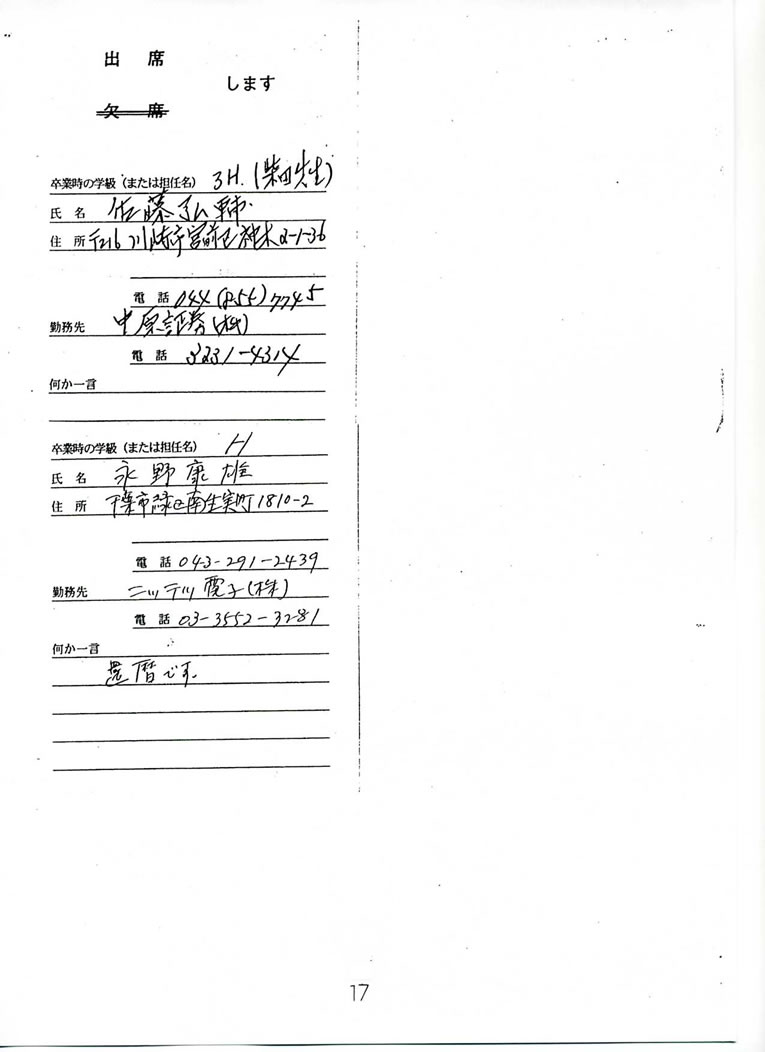 出席
します
欠席
卒業時の学級（または担任名） 3H.(柴田先生)
氏名 佐藤弘輔
住所 〒216 川崎市宮前区神木2-1-36
電話 044(855)7745
勤務先 中原証券(株)
電話 3231-4314
何か一言
卒業時の学級（または担任名） H
氏名 永野康雄
住所 千葉市緑区南生実町1810-2
電話 043-291-2439
勤務先 ニッテツ電子(株)
電話 03-3552-3281
何か一言
還暦です.
17